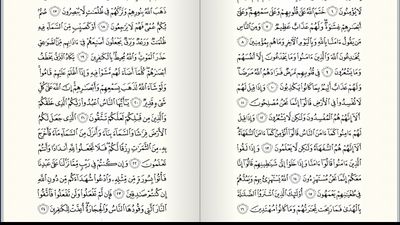 لَا يُؤْمِنُونَ ٦ خَتَمَ ٱللَّهُ عَلَىٰ قُلُوبِهِمْ وَعَلَىٰ سَمْعِهِمْ وَعَلَىٰٓ
أَبْصَٰرِهِمْ غِشَٰوَةٌ وَلَهُمْ عَذَابٌ عَظِيمٌ ٧ وَمِنَ ٱلنَّاسِ
مَن يَقُولُ ءَامَنَّا بِٱللَّهِ وَبِٱلْيَوْمِ ٱلْءَاخِرِ وَمَا هُم بِمُؤْمِنِينَ ٨
يُخَٰدِعُونَ ٱللَّهَ وَٱلَّذِينَ ءَامَنُوا۟ وَمَا يَخْدَعُونَ إِلَّآ أَنفُسَهُمْ
وَمَا يَشْعُرُونَ ٩ فِى قُلُوبِهِم مَّرَضٌ فَزَادَهُمُ ٱللَّهُ مَرَضًا
وَلَهُمْ عَذَابٌ أَلِيمٌۢ بِمَا كَانُوا۟ يَكْذِبُونَ ١٠ وَإِذَا قِيلَ لَهُمْ
لَا تُفْسِدُوا۟ فِى ٱلْأَرْضِ قَالُوٓا۟ إِنَّمَا نَحْنُ مُصْلِحُونَ ١١
أَلَآ إِنَّهُمْ هُمُ ٱلْمُفْسِدُونَ وَلَٰكِن لَّا يَشْعُرُونَ ١٢ وَإِذَا قِيلَ
لَهُمْ ءَامِنُوا۟ كَمَآ ءَامَنَ ٱلنَّاسُ قَالُوٓا۟ أَنُؤْمِنُ كَمَآ ءَامَنَ ٱلسُّفَهَآءُ
أَلَآ إِنَّهُمْ هُمُ ٱلسُّفَهَآءُ وَلَٰكِن لَّا يَعْلَمُونَ ١٣ وَإِذَا لَقُوا۟
ٱلَّذِينَ ءَامَنُوا۟ قَالُوٓا۟ ءَامَنَّا وَإِذَا خَلَوْا۟ إِلَىٰ شَيَٰطِينِهِمْ قَالُوٓا۟ إِنَّا
مَعَكُمْ إِنَّمَا نَحْنُ مُسْتَهْزِءُونَ ١٤ ٱللَّهُ يَسْتَهْزِئُ بِهِمْ وَيَمُدُّهُمْ
فِى طُغْيَٰنِهِمْ يَعْمَهُونَ ١٥ أُو۟لَٰٓئِكَ ٱلَّذِينَ ٱشْتَرَوُا۟ ٱلضَّلَٰلَةَ
بِٱلْهُدَىٰ فَمَا رَبِحَت تِّجَٰرَتُهُمْ وَمَا كَانُوا۟ مُهْتَدِينَ ١٦
ذَهَبَ ٱللَّهُ بِنُورِهِمْ وَتَرَكَهُمْ فِى ظُلُمَٰتٍ لَّا يُبْصِرُونَ ١٧ صُمٌّۢ
بُكْمٌ عُمْىٌ فَهُمْ لَا يَرْجِعُونَ ١٨ أَوْ كَصَيِّبٍ مِّنَ ٱلسَّمَآءِ فِيهِ
ظُلُمَٰتٌ وَرَعْدٌ وَبَرْقٌ يَجْعَلُونَ أَصَٰبِعَهُمْ فِىٓ ءَاذَانِهِم مِّنَ ٱلصَّوَٰعِقِ
حَذَرَ ٱلْمَوْتِ وَٱللَّهُ مُحِيطٌۢ بِٱلْكَٰفِرِينَ ١٩ يَكَادُ ٱلْبَرْقُ يَخْطَفُ
أَبْصَٰرَهُمْ كُلَّمَآ أَضَآءَ لَهُم مَّشَوْا۟ فِيهِ وَإِذَآ أَظْلَمَ عَلَيْهِمْ قَامُوا۟
وَلَوْ شَآءَ ٱللَّهُ لَذَهَبَ بِسَمْعِهِمْ وَأَبْصَٰرِهِمْ إِنَّ ٱللَّهَ عَلَىٰ كُلِّ
شَىْءٍ قَدِيرٌ ٢٠ يَٰٓأَيُّهَا ٱلنَّاسُ ٱعْبُدُوا۟ رَبَّكُمُ ٱلَّذِى خَلَقَكُمْ
وَٱلَّذِينَ مِن قَبْلِكُمْ لَعَلَّكُمْ تَتَّقُونَ ٢١ ٱلَّذِى جَعَلَ لَكُمُ
ٱلْأَرْضَ فِرَٰشًا وَٱلسَّمَآءَ بِنَآءً وَأَنزَلَ مِنَ ٱلسَّمَآءِ مَآءً فَأَخْرَجَ
بِهِۦ مِنَ ٱلثَّمَرَٰتِ رِزْقًا لَّكُمْ فَلَا تَجْعَلُوا۟ لِلَّهِ أَندَادًا وَأَنتُمْ
تَعْلَمُونَ ٢٢ وَإِن كُنتُمْ فِى رَيْبٍ مِّمَّا نَزَّلْنَا عَلَىٰ عَبْدِنَا
فَأْتُوا۟ بِسُورَةٍ مِّن مِّثْلِهِۦ وَٱدْعُوا۟ شُهَدَآءَكُم مِّن دُونِ ٱللَّهِ
إِن كُنتُمْ صَٰدِقِينَ ٢٣ فَإِن لَّمْ تَفْعَلُوا۟ وَلَن تَفْعَلُوا۟ فَٱتَّقُوا۟
ٱلنَّارَ ٱلَّتِى وَقُودُهَا ٱلنَّاسُ وَٱلْحِجَارَةُ أُعِدَّتْ لِلْكَٰفِرِينَ ٢٤